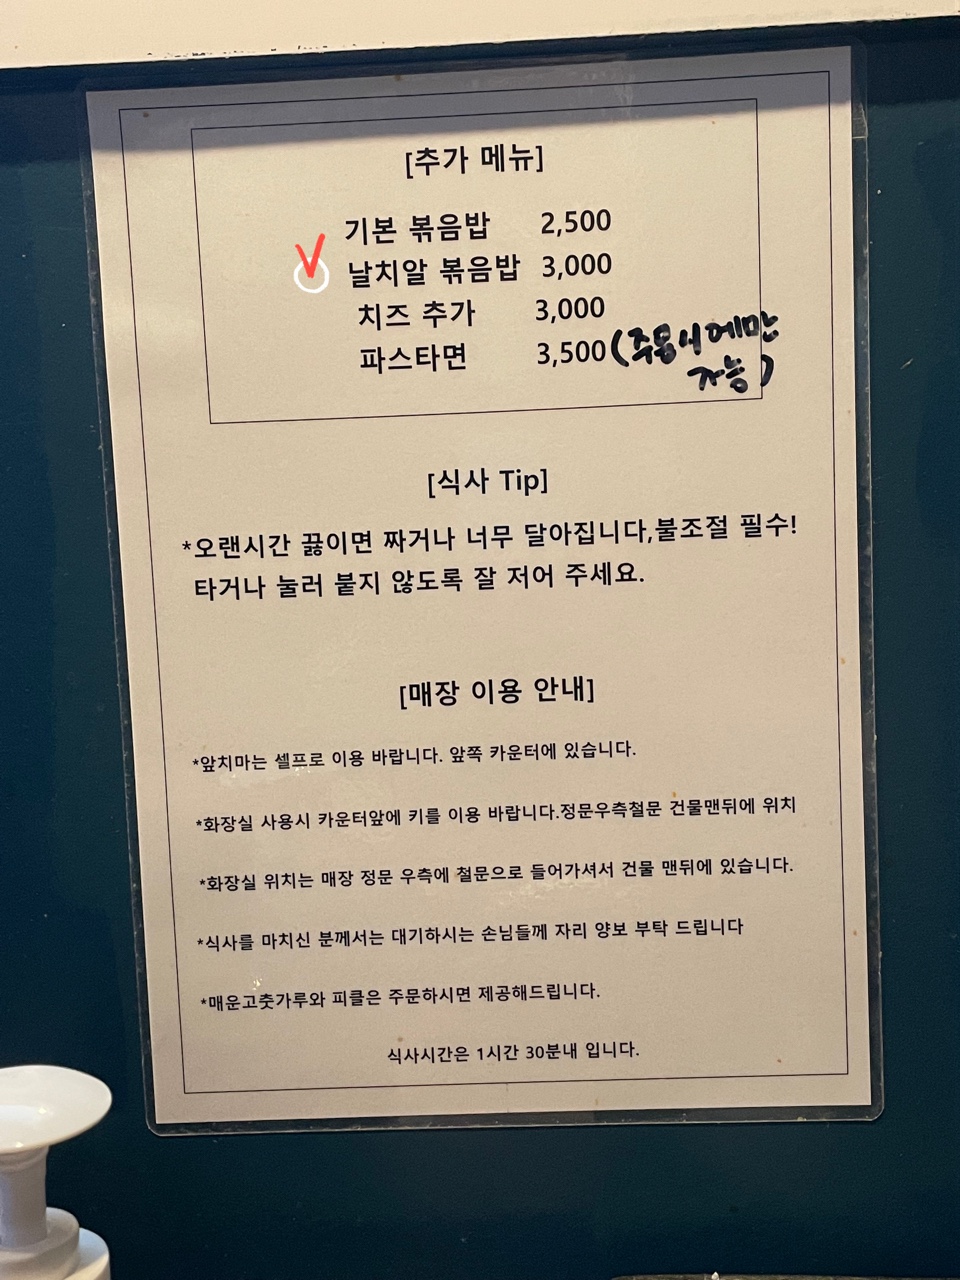 [추가 메뉴]
기본 볶음밥 2,500
날치알 볶음밥 3,000
치즈 추가 3,000
파스타면 3,500 (주문시에만
가능)
[식사 Tip]
*오랜시간 끓이면 짜거나 너무 달아집니다,불조절 필수!
타거나 눌러 붙지 않도록 잘 저어 주세요.
[매장 이용 안내]
*앞치마는 셀프로 이용 바랍니다. 앞쪽 카운터에 있습니다.
*화장실 사용시 카운터앞에 키를 이용 바랍니다.정문우측철문 건물맨뒤에 위치
*화장실 위치는 매장 정문 우측에 철문으로 들어가셔서 건물 맨뒤에 있습니다.
*식사를 마치신 분께서는 대기하시는 손님들께 자리 양보 부탁 드립니다
*매운고춧가루와 피클은 주문하시면 제공해드립니다.
식사시간은 1시간 30분내 입니다.